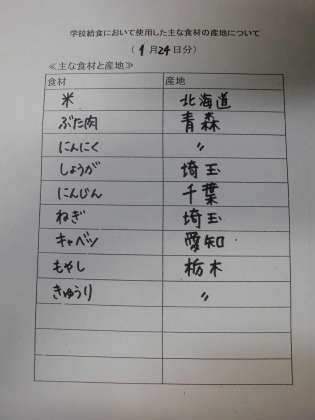 学校給食において使用した主な食材の産地について
(1月24日分)
≪主な食材と産地≫
食材 産地
米 北海道
ぶた肉 青森
にんにく 〃
しょうが 埼玉
にんじん 千葉
ねぎ 埼玉
キャベツ 愛知
もやし 栃木
きゅうり 〃